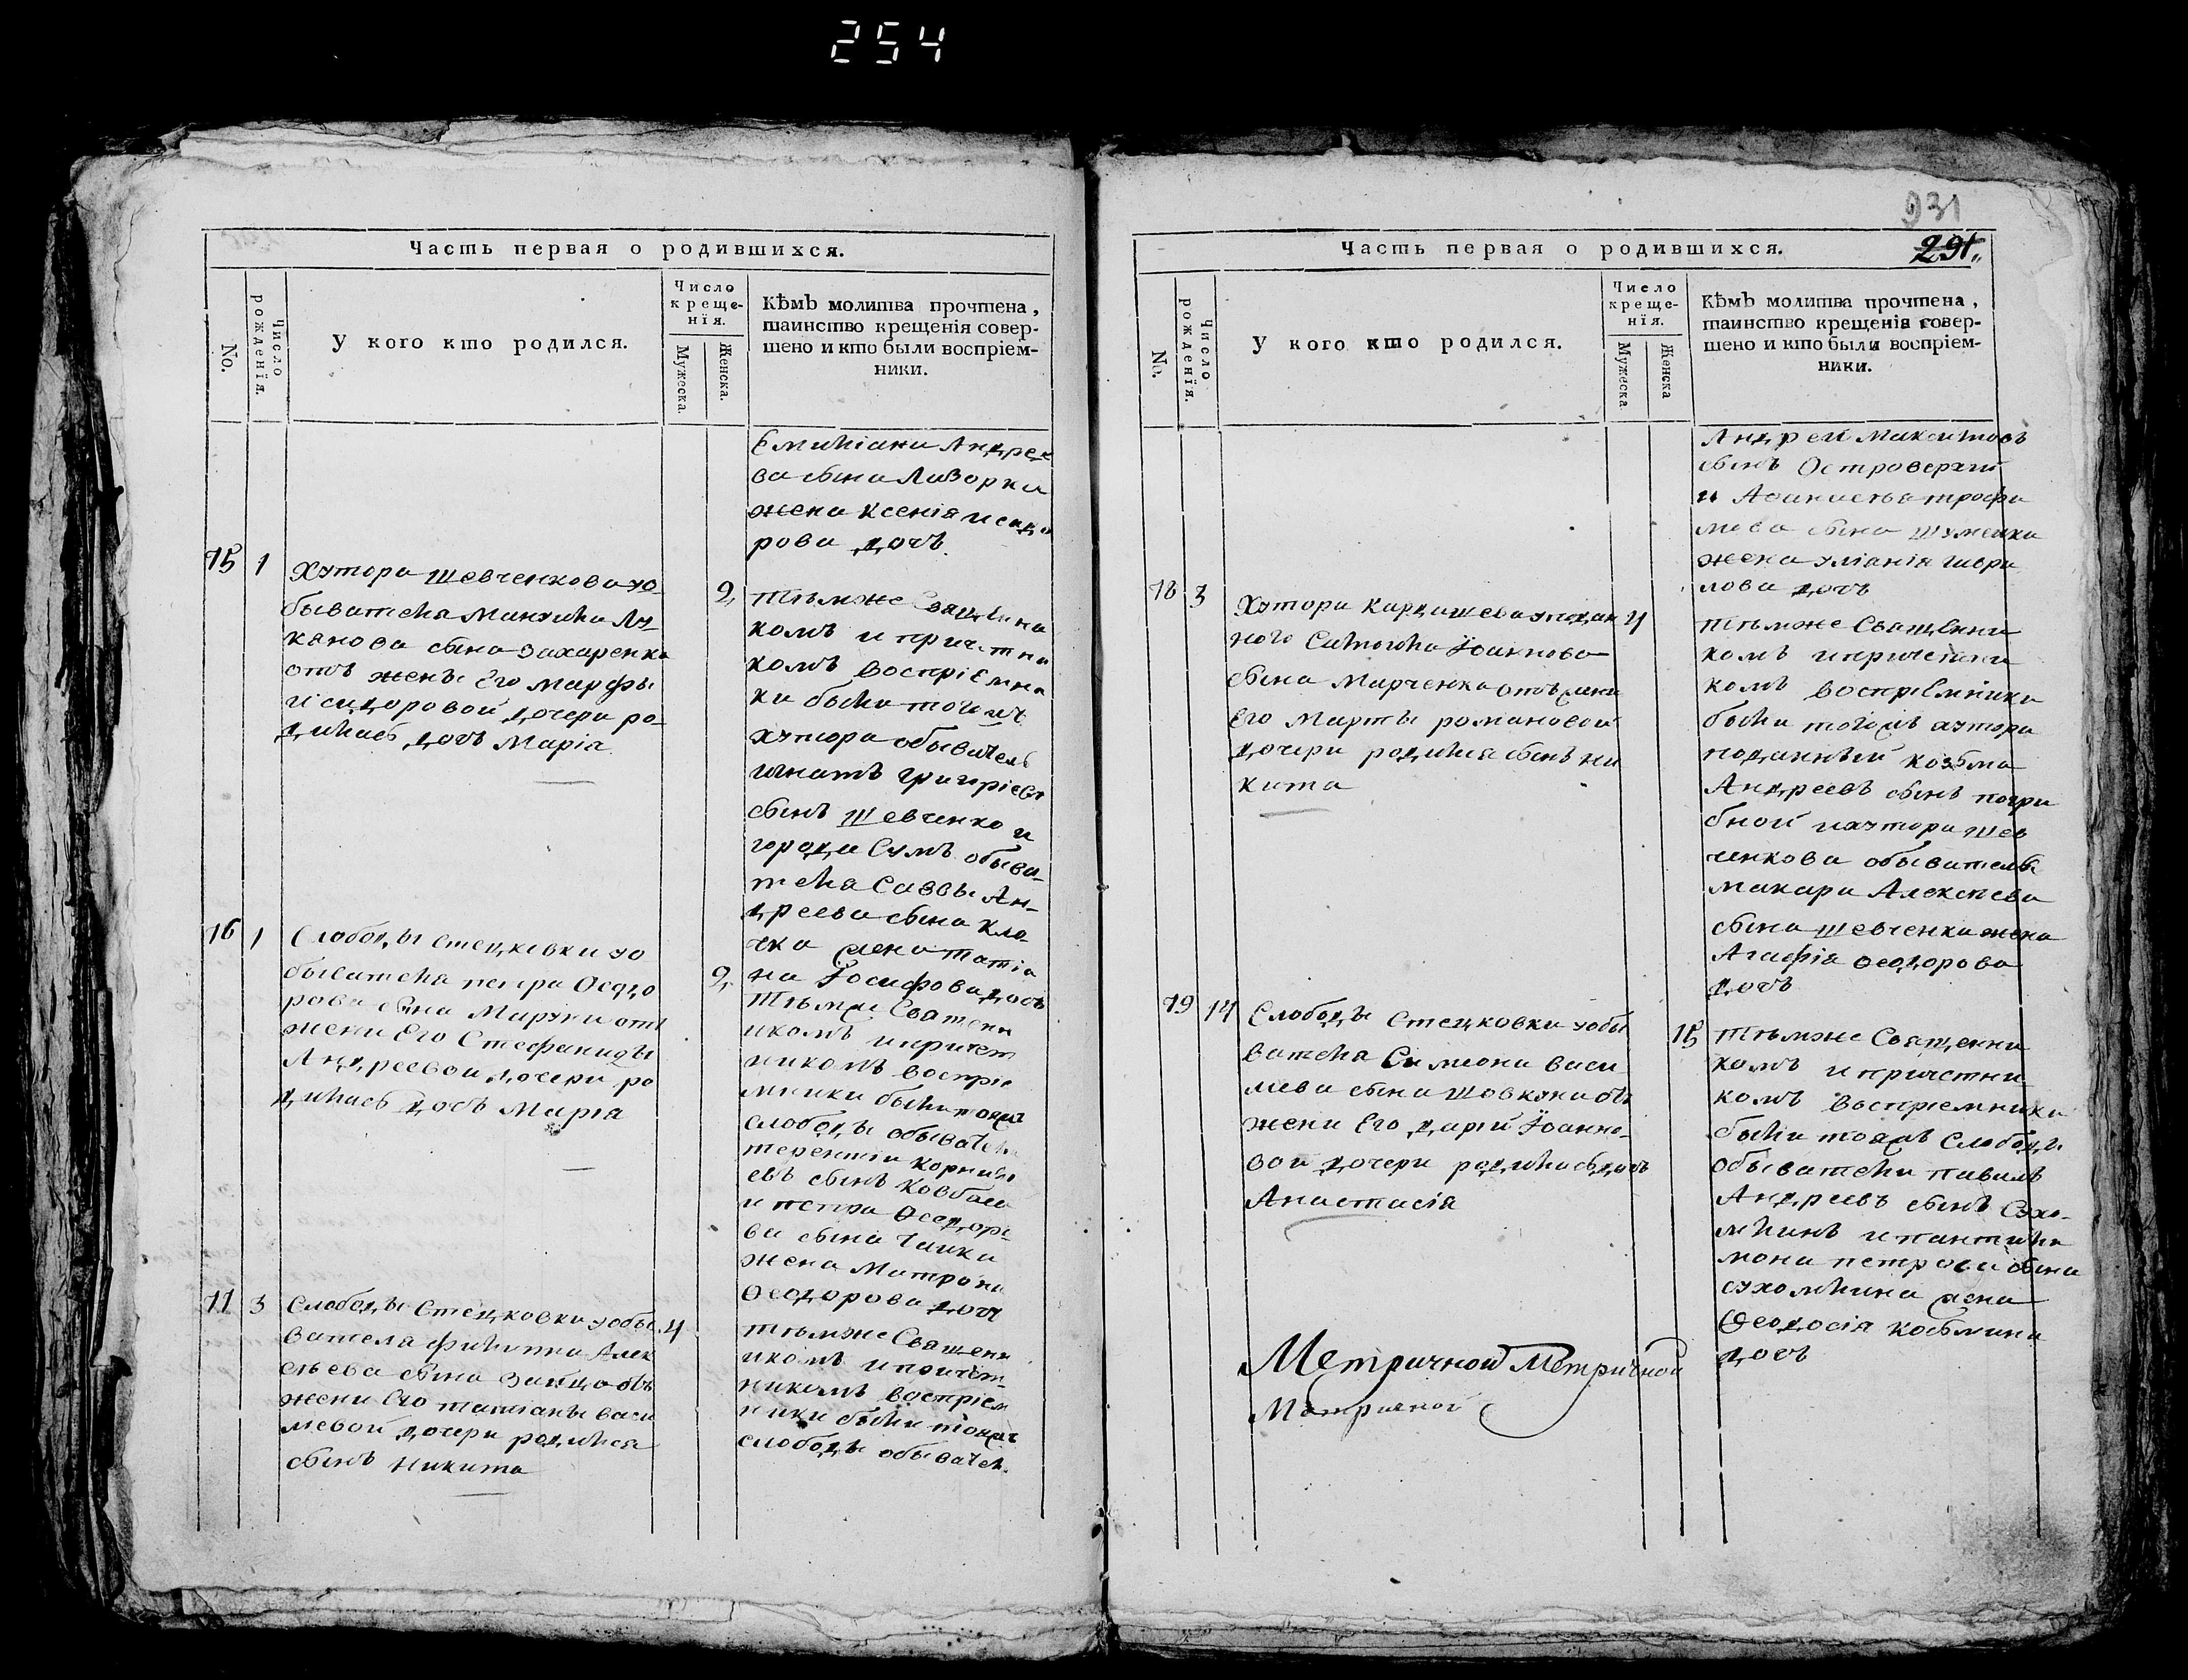 254
Часть первая о родившихся.
No.
Число рожденія.
У кого кто родился.
Число
креще-
нія.
Мужеска.
Женска.
Кѣмъ молитва прочтена,
таинство крещенія совер-
шено и кто были воспріем-
ники.
Емиліана Андрее
ва сына Лазорка
жена Ксенія исидо
рова дочь.
15
1
Хутора Шевченкова у о
бывателя Мануила Лу
канова сына Захаренка
отъ жены Его Марфы
исидоровой дочери ро
дилась дочь Марія
2
тѣмже Священни
комъ и причетни
комъ воспріемни
ки были тогожъ
хутора обыватель
игнатъ григоріевъ
сынъ Шевченко и
города Сумъ обыва
теля Саввы Ан
дреева сына Кло
чка жена татія
на Іосифова дочь
16
1
Слободы Стецковки у о
бывателя петра Ѳедо
рова сына Маруни отъ
жены Его Стефаниды
Андреевой дочери ро
дилась дочь Марія
2
тѣмже Священн
икомъ и причет
никомъ воспріе
мники были тояжъ
слободы обыватель
терентіи Корнилі
евъ сынъ Ковбаса
и петра Ѳедоро
ва сына Чайки
жена Матрона
Ѳеодорова дочь
17
3
Слободы Стецковки у обы
вателя филиппа Алек
сѣева сына Зайца отъ
жены Его татіаны васи
лиевой дочери родился
сынъ Никита
4
тѣмже Священн
икомъ и причет
никомъ воспріем
ники были тояжъ
слободы обывател.
931
291.
Часть первая о родившихся.
No.
Число рожденія.
У кого кто родился.
Число
креще-
нія.
Мужеска
Женска
Кѣмъ молитва прочтена,
таинство крещенія совер-
шено и кто были воспріем-
ники.
Андреи Макситовъ
сынъ Островерхій
и Аѳанасія трофи
мова сына Шуменка
жена уліанія гаври
лова дочь
18
3
Хутора Кардашева у подан
ного Самоила Іоаннова
сына Марченка отъ жены
Его Марты романовой
дочери родился сынъ ни
кита
4
тѣмже Священни
комъ и причетни
комъ воспріемники
были тогожъ хутора
поданный козьма
Андреевъ сынъ погри
бной и хутора шев
ченкова обывателя
макара Алексѣева
сына шевченка жена
Агафія ѳеодорова
дочь
19
14
Слободы Стецковки у обы
вателя Симиона васи
лиева сына Шовкуна отъ
жены Его даріи Іоанно
вой дочери родилась дочь
Анастасія
15
тѣмже Священни
комъ и причетни
комъ воспріемники
были тояжъ Слободы
обыватели павилъ
Андреевъ сынъ Сухо
млинъ и пантили
мона петрова сына
сухомлина жена
Ѳеодосія козьмина
дочь
Метричной Метричной
Метричной